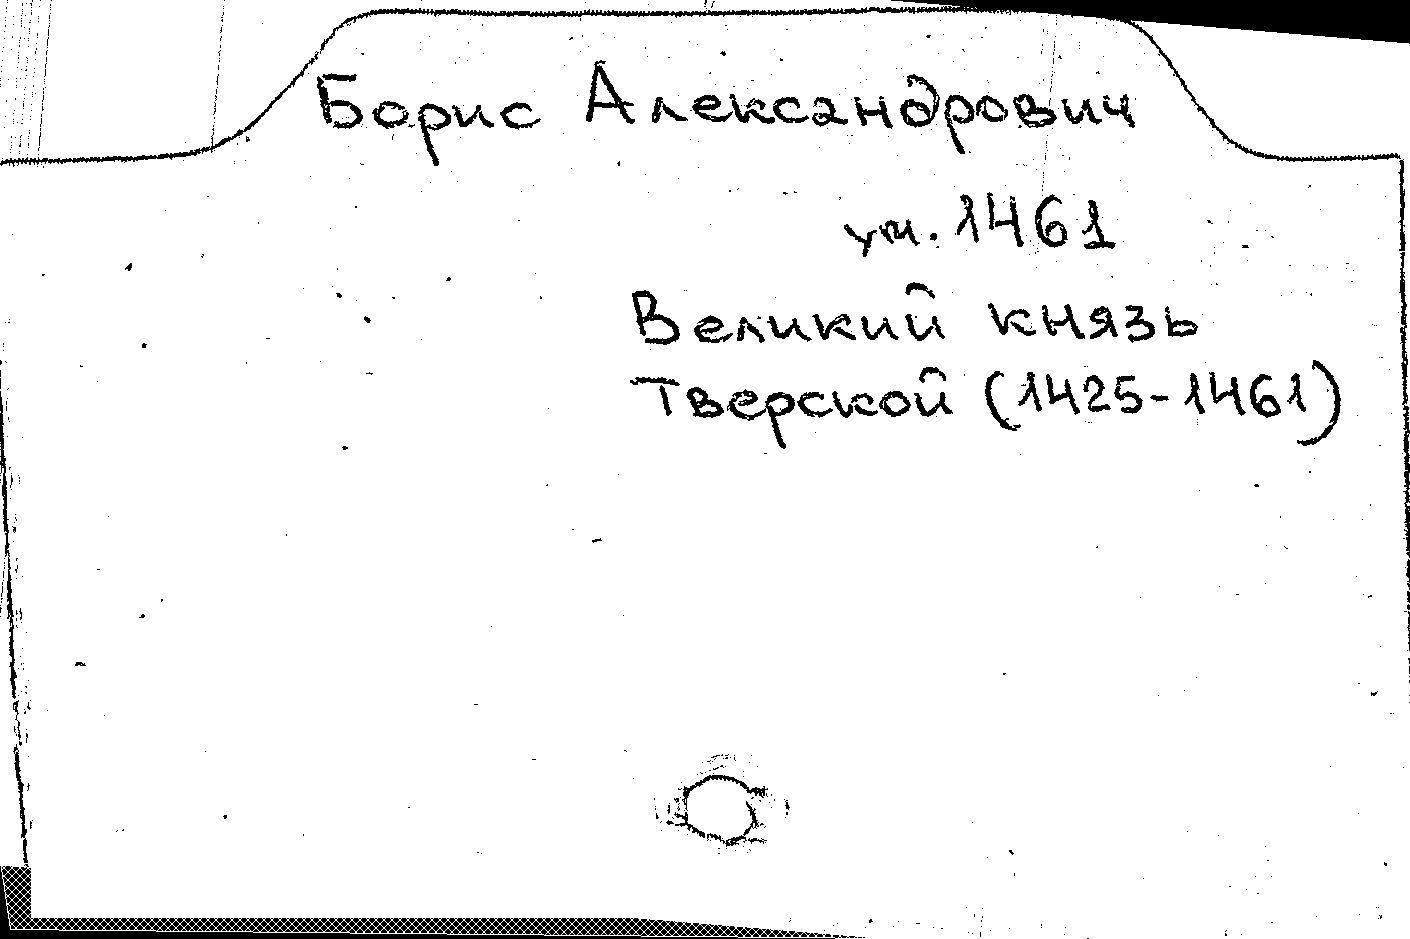 Борис Александрович
ум. 1461
Великий князь
Тверской (1425-1461)